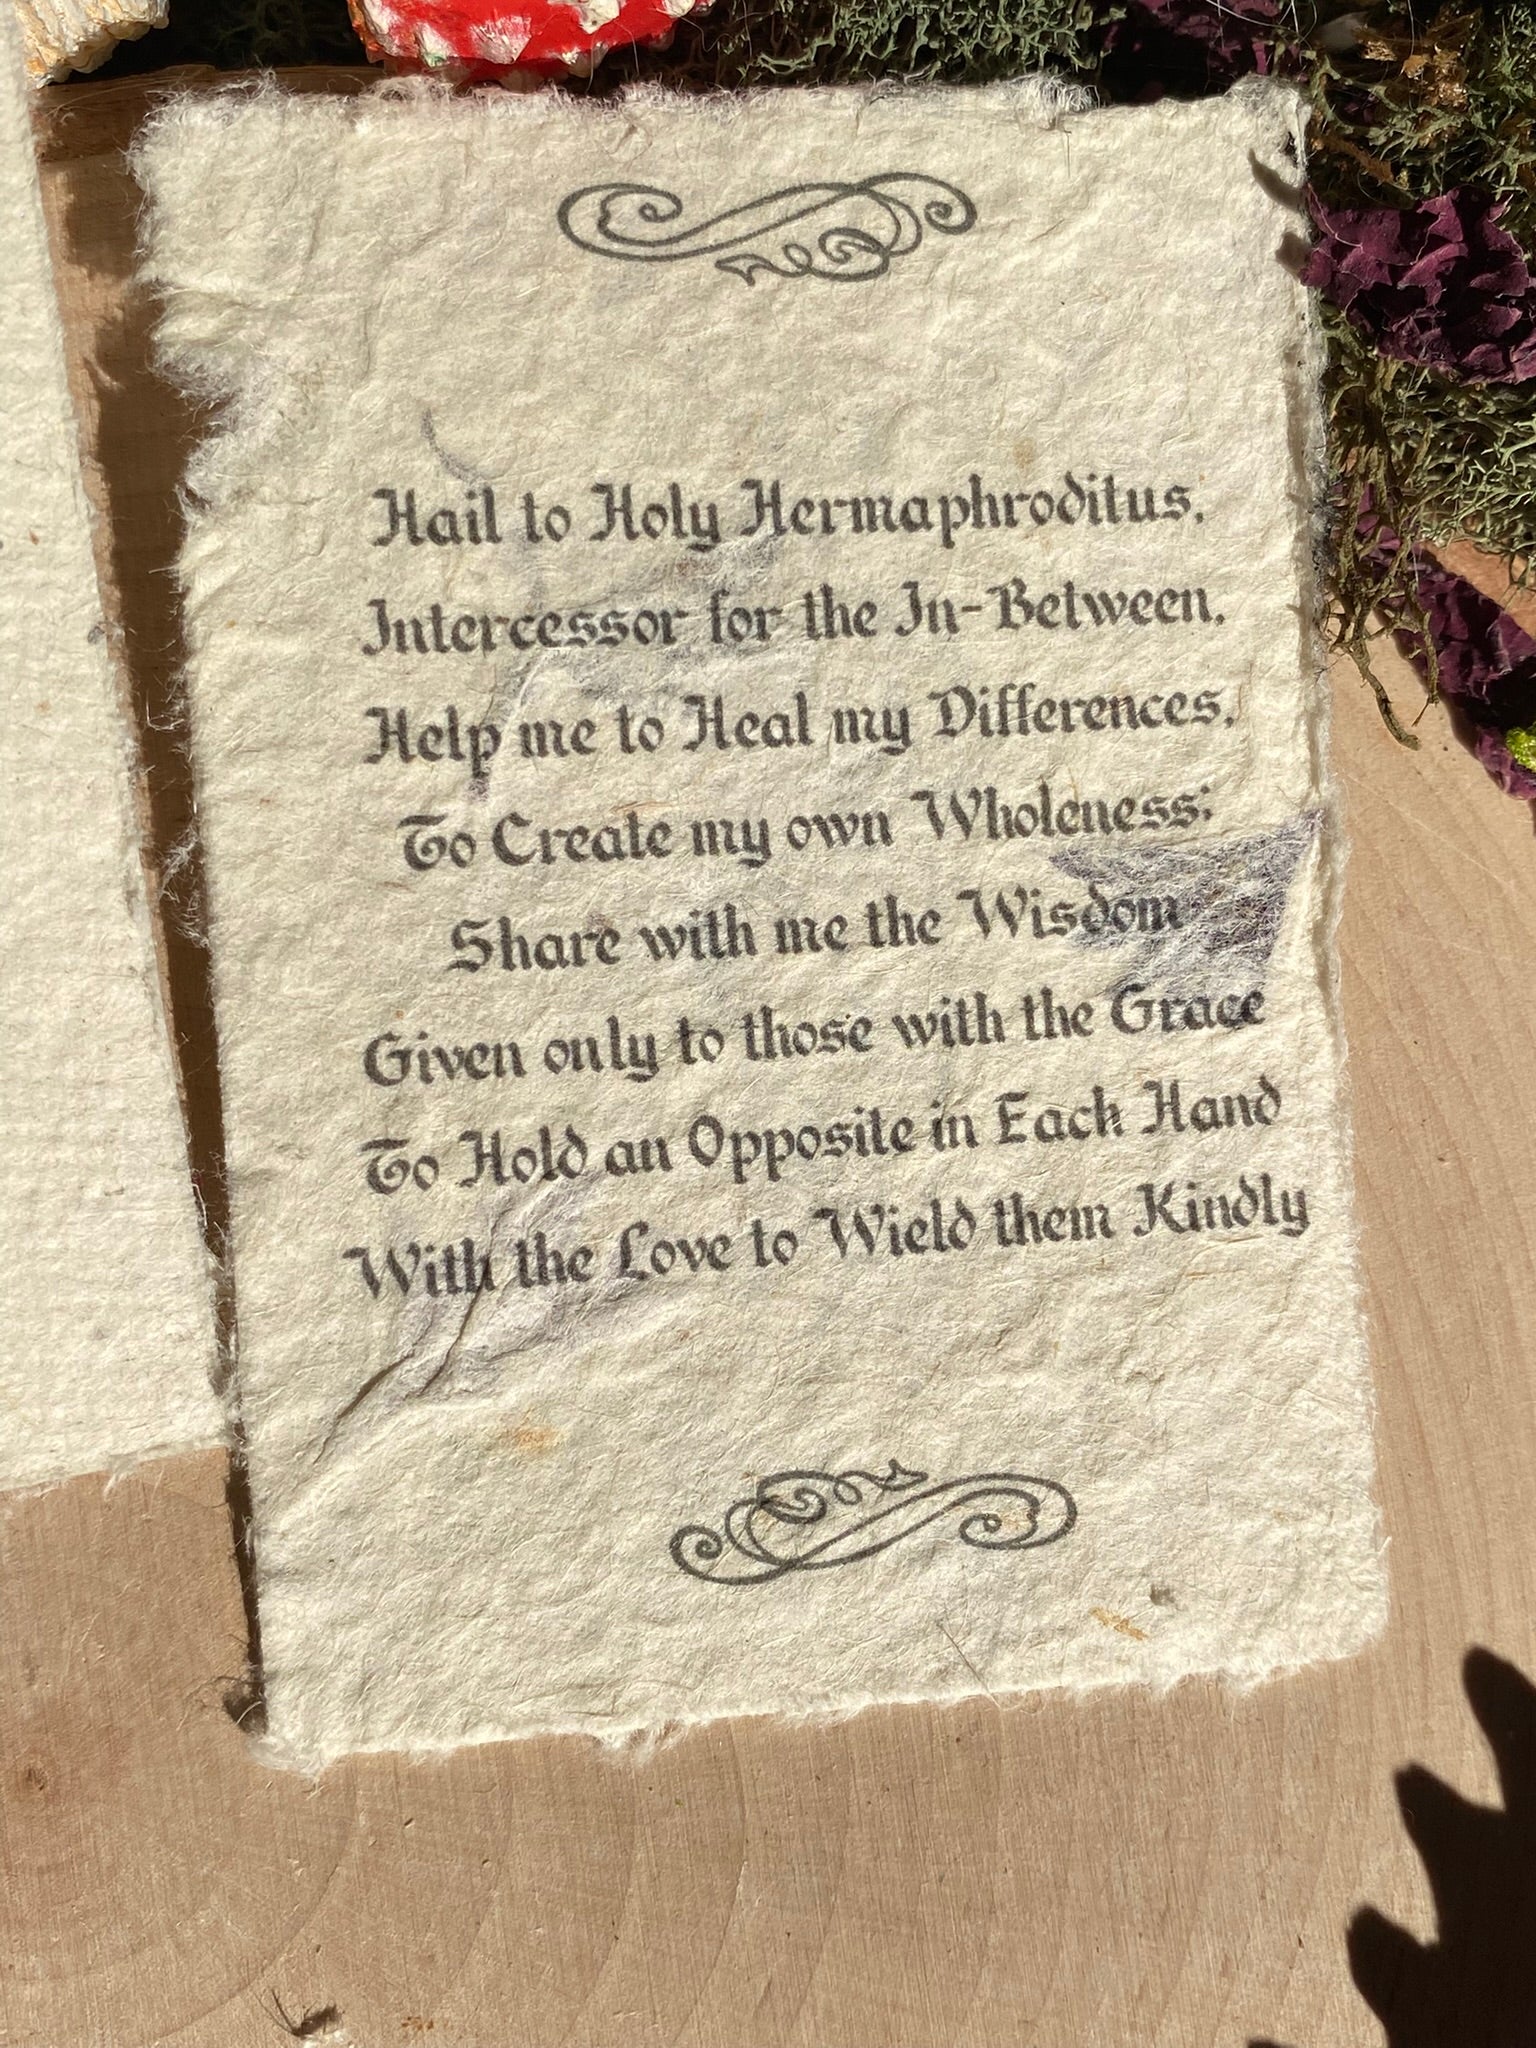 Hail to Holy Hermaphroditus,
Intercessor for the In-Between,
Help me to Heal my Differences,
To Create my own Wholeness;
Share with me the Wisdom
Given only to those with the Grace
To Hold an Opposite in Each Hand
With the Love to Wield them Kindly